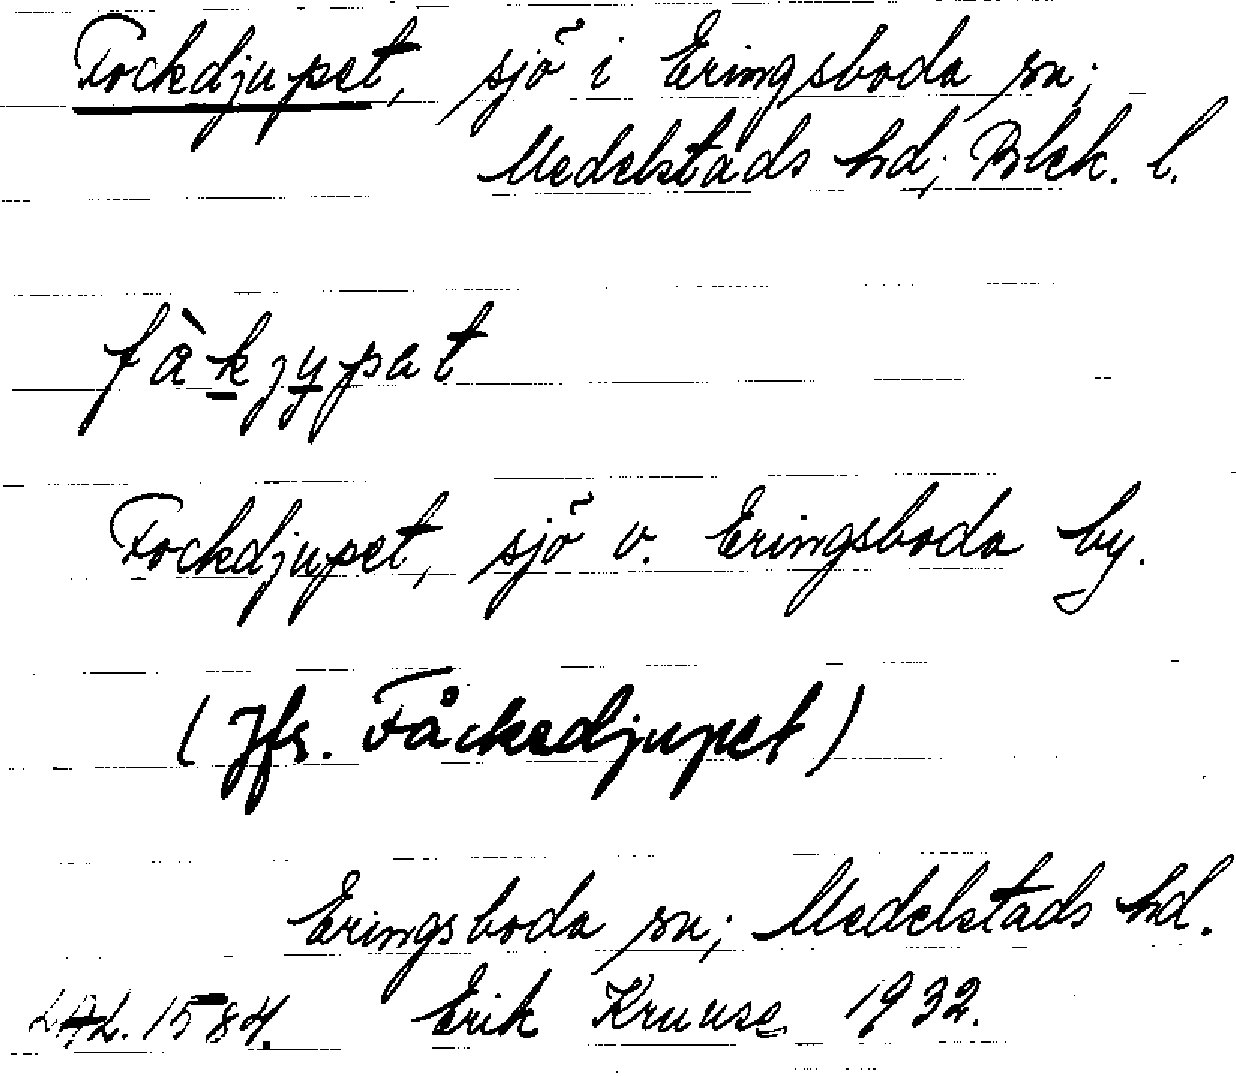 Fockdjupet, sjö i Eringsboda sn;
Medelstads hd; Blek. l.
fàkjypat
Fockdjupet, sjö v. Eringsboda by.
(Jfr. Fåckedjupet)
Eringsboda sn; Medelstads hd.
LAL. 1584. Erik Kruuse 1932.